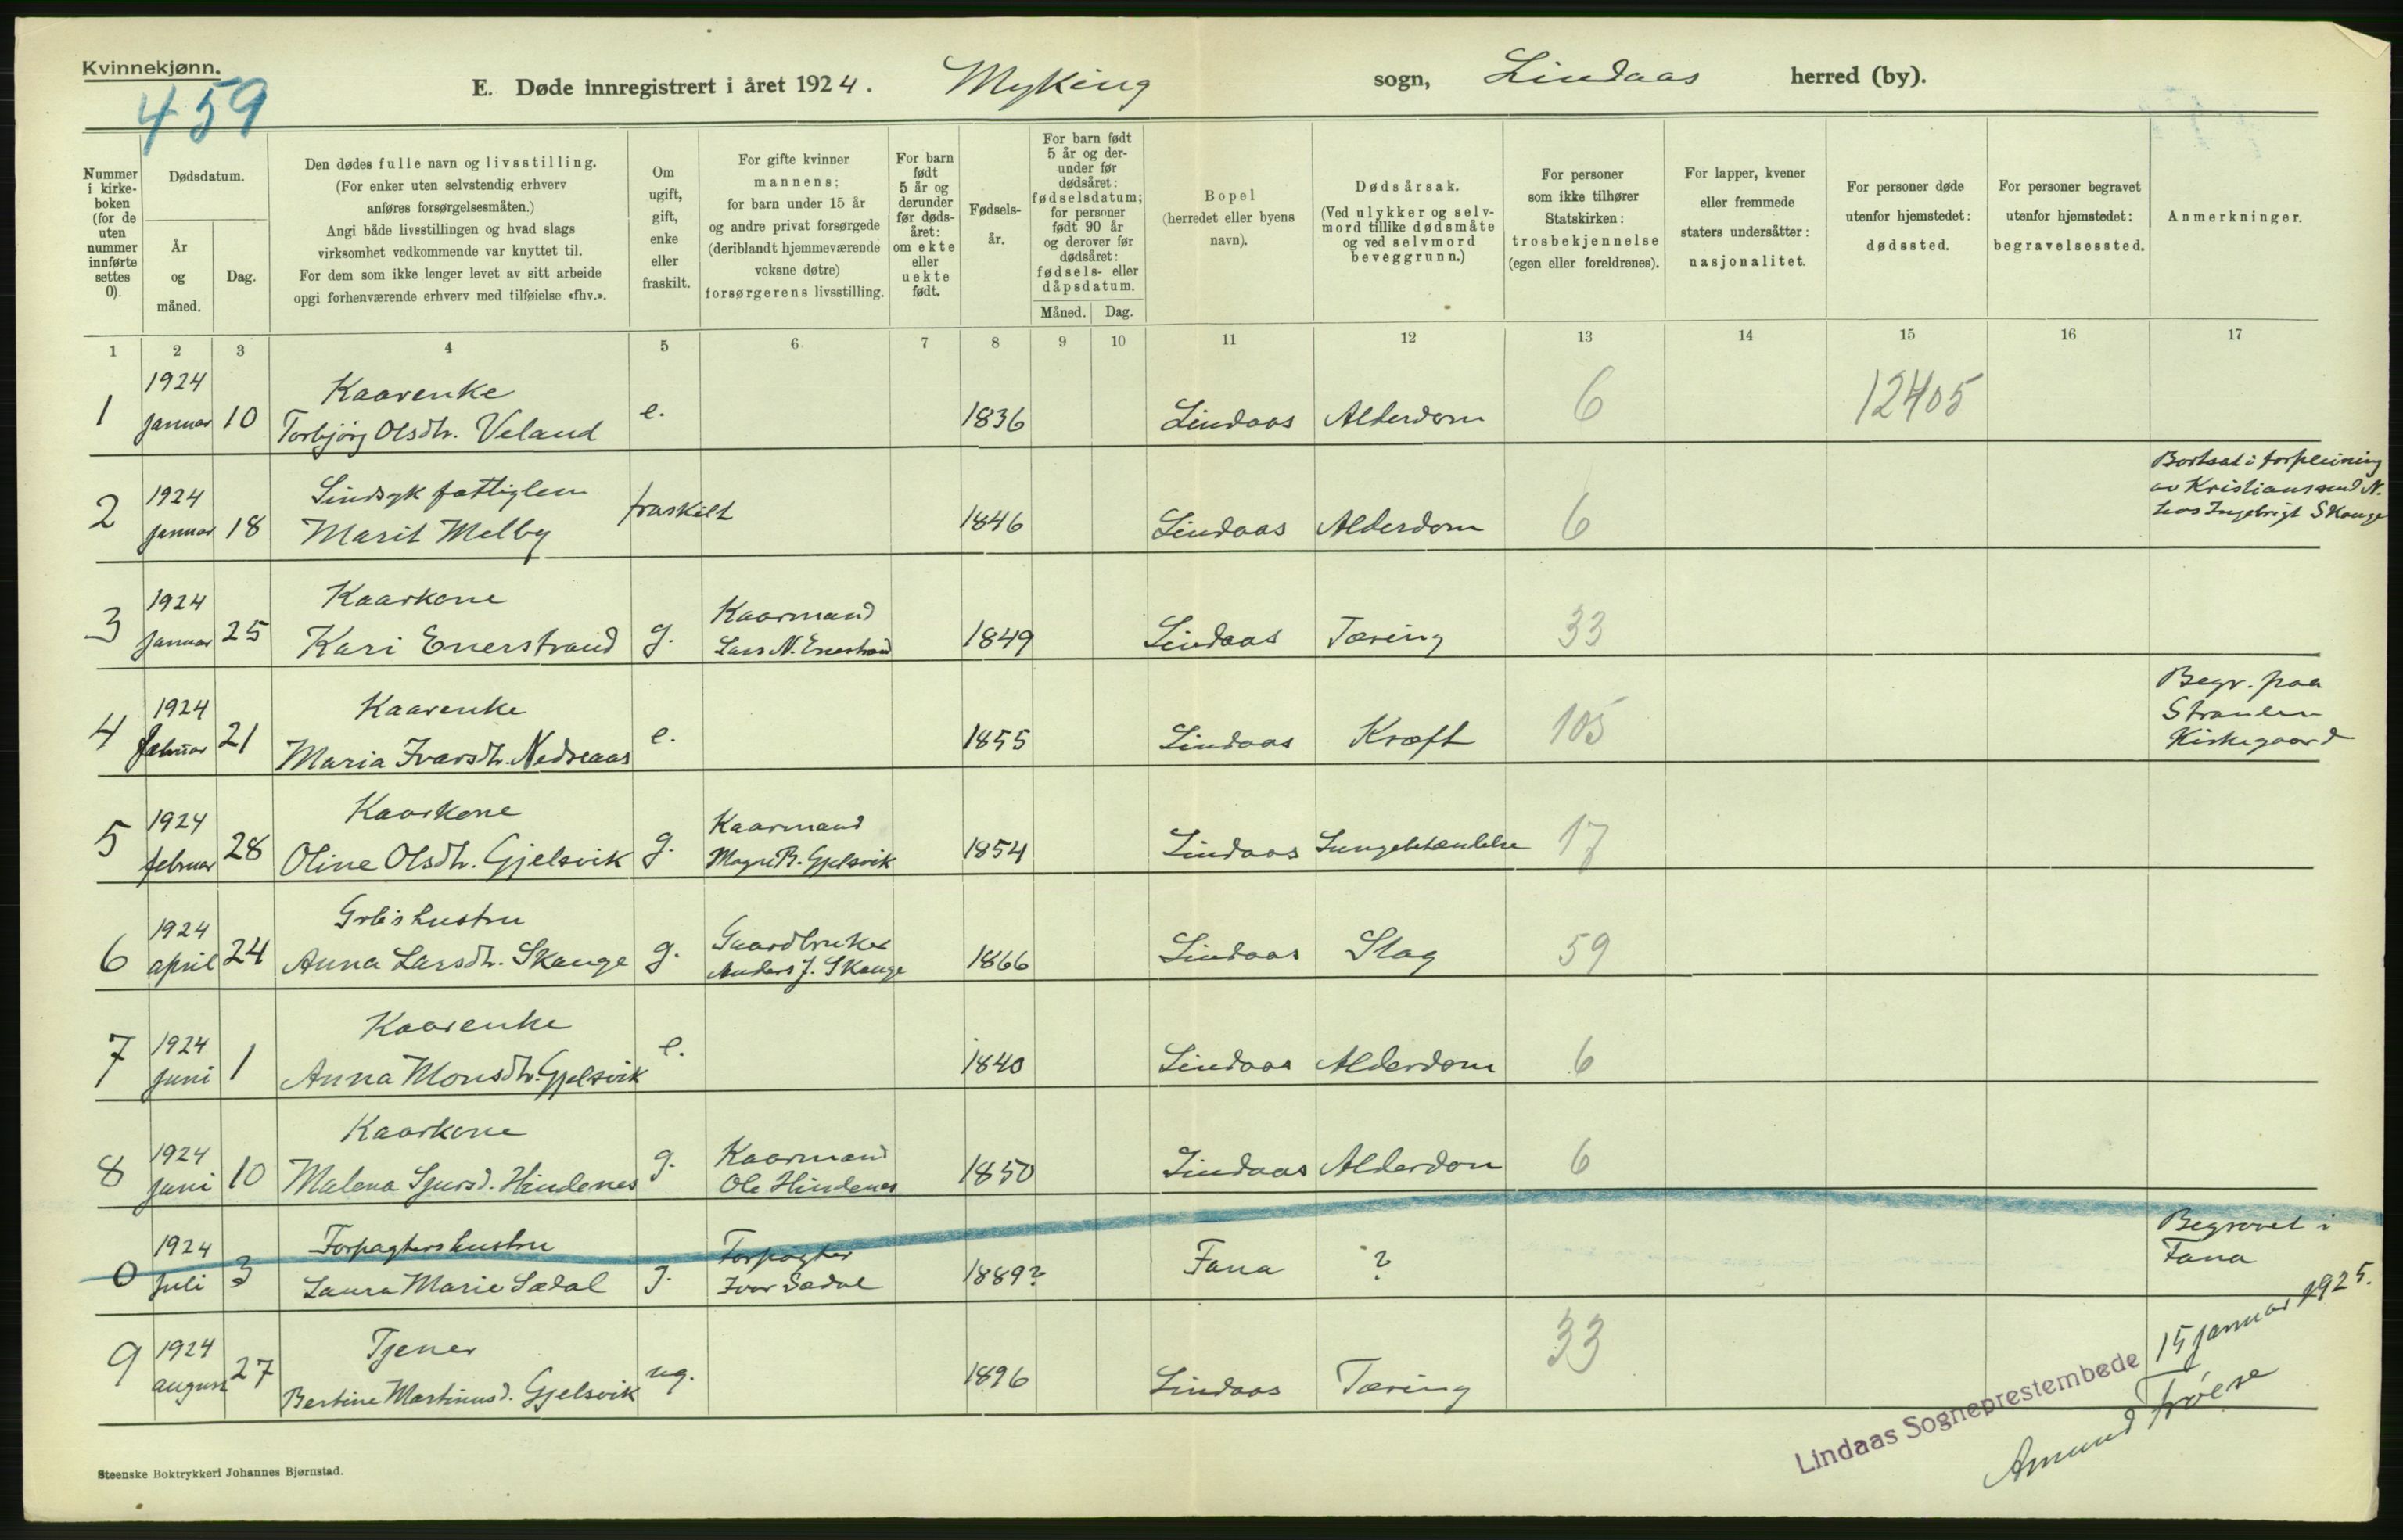 Kvinnekjønn.
459
E. Døde innregistrert i året 1924. Myking sogn, Lindaas herred (by).
Nummer i kirke-boken (for de uten nummer innførte settes 0).
Dødsdatum.
År og måned.
Dag.
Den dødes fulle navn og livsstilling.
(For enker uten selvstendig erhverv
anføres forsørgelsesmåten.)
Angi både livsstillingen og hvad slags
virksomhet vedkommende var knyttet til.
For dem som ikke lenger levet av sitt arbeide
opgi forhenværende erhverv med tilføielse «fhv.».
Om ugift, gift, enke eller fraskilt.
For gifte kvinner
mannens;
for barn under 15 år
og andre privat forsørgede
(deriblandt hjemmeværende
voksne døtre)
forsørgerens livsstilling.
For barn født 5 år og derunder før døds-året: om ekte eller uekte født.
Fødsels-år.
For barn født
5 år og der-
under før
dødsåret:
fødselsdatum;
for personer
født 90 år
og derover før
dødsåret:
fødsels- eller
dåpsdatum.
Måned. Dag.
Bopel
(herredet eller byens
navn).
Dødsårsak.
(Ved ulykker og selv-
mord tillike dødsmåte
og ved selvmord
beveggrunn.)
For personer
som ikke tilhører
Statskirken:
trosbekjennelse
(egen eller foreldrenes).
For lapper, kvener
eller fremmede
staters undersåtter:
nasjonalitet.
For personer døde
utenfor hjemstedet:
dødssted.
For personer begravet
utenfor hjemstedet:
begravelsessted.
Anmerkninger.
1 2 3 4 5 6. 7 8 9 10 11 12 13 14 15 16 17
1924 Kaarenke
1 januar 10 Torbjørg Olsdtr. Veland e. 1836 Lindaas Alderdom 6 12405
1924 Sindsyk fattiglem
2 januar 18 Marit Melby fraskilt 1846 Lindaas Alderdom 6
Bortsat i forpleining
av Kristianssund N.
hos Ingebrigt Skauge
1924 Kaarkone Kaarmand
3 januar 25 Kari Enerstrand g. Lars N. Enerstrand 1849 Lindaas Tæring 33
1924 Kaarenke
4 februar 21 Maria Ivarsdtr. Nedreaas e. 1855 Lindaas Kræft 105
Begr. paa
Kirkegaard
1924 Kaarkone Kaarmand
5 februar 28 Oline Olsdtr. Gjelsvik g. Magne B. Gjelsvik 1854 Lindaas Lungebetændelse 17
1924 Grbr's hustru Gaardbruker
6 april 24 Anna Larsdtr. Skauge g. Anders J. Skauge 1866 Lindaas Slag 59
1924 Kaarenke
7 juni 1 Anna Monsdtr. Gjelsvik e. 1840 Lindaas Alderdom 6
1924 Kaarkone Kaarmand
8 juni 10 Malena Sjursd. Hindenes g. Ole Hindenes 1850 Lindaas Alderdom 6
1924 Forpagters hustru Forpagter
0 juli 3 Laura Marie Sædal g. Ivar Sædal 1889? Fana ?
Begravet i
Fana
1924 Tjener
9 august 27 Bertine Martinusd. Gjelsvik ug. 1896 Lindaas Tæring 33
Lindaas Sogneprestembede 15 januar 1925.
Amund
Steenske Boktrykkeri Johannes Bjørnstad.